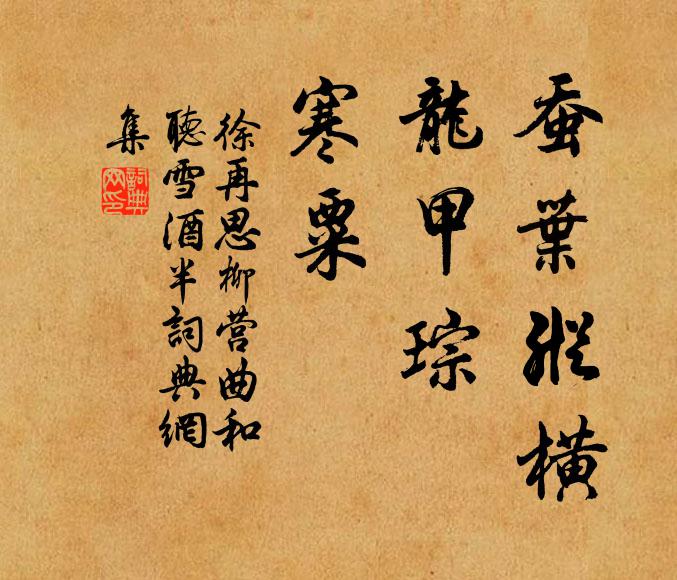 蚕葉縱橫
龍甲琮
寒粟
徐再思柳营曲和
聽雪酒半詞典網
集
詞典
网印